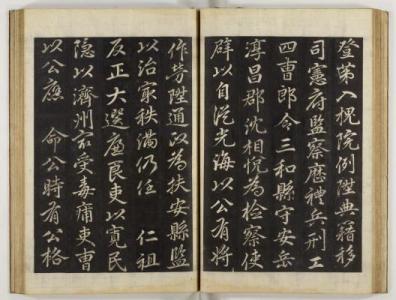 登第入槐院例陞典籍移
司憲府監察歷禮兵刑工
四曺郎令三和縣守安岳
淳昌郡沈相悅為檢察使
辟以自從光海以公有將
作勞陞通政為扶安縣監
以治最秩滿仍任　仁祖
反正大選廉良吏以寬民
隱以濟州最受毒痡吏曺
以公應　命公時有公格